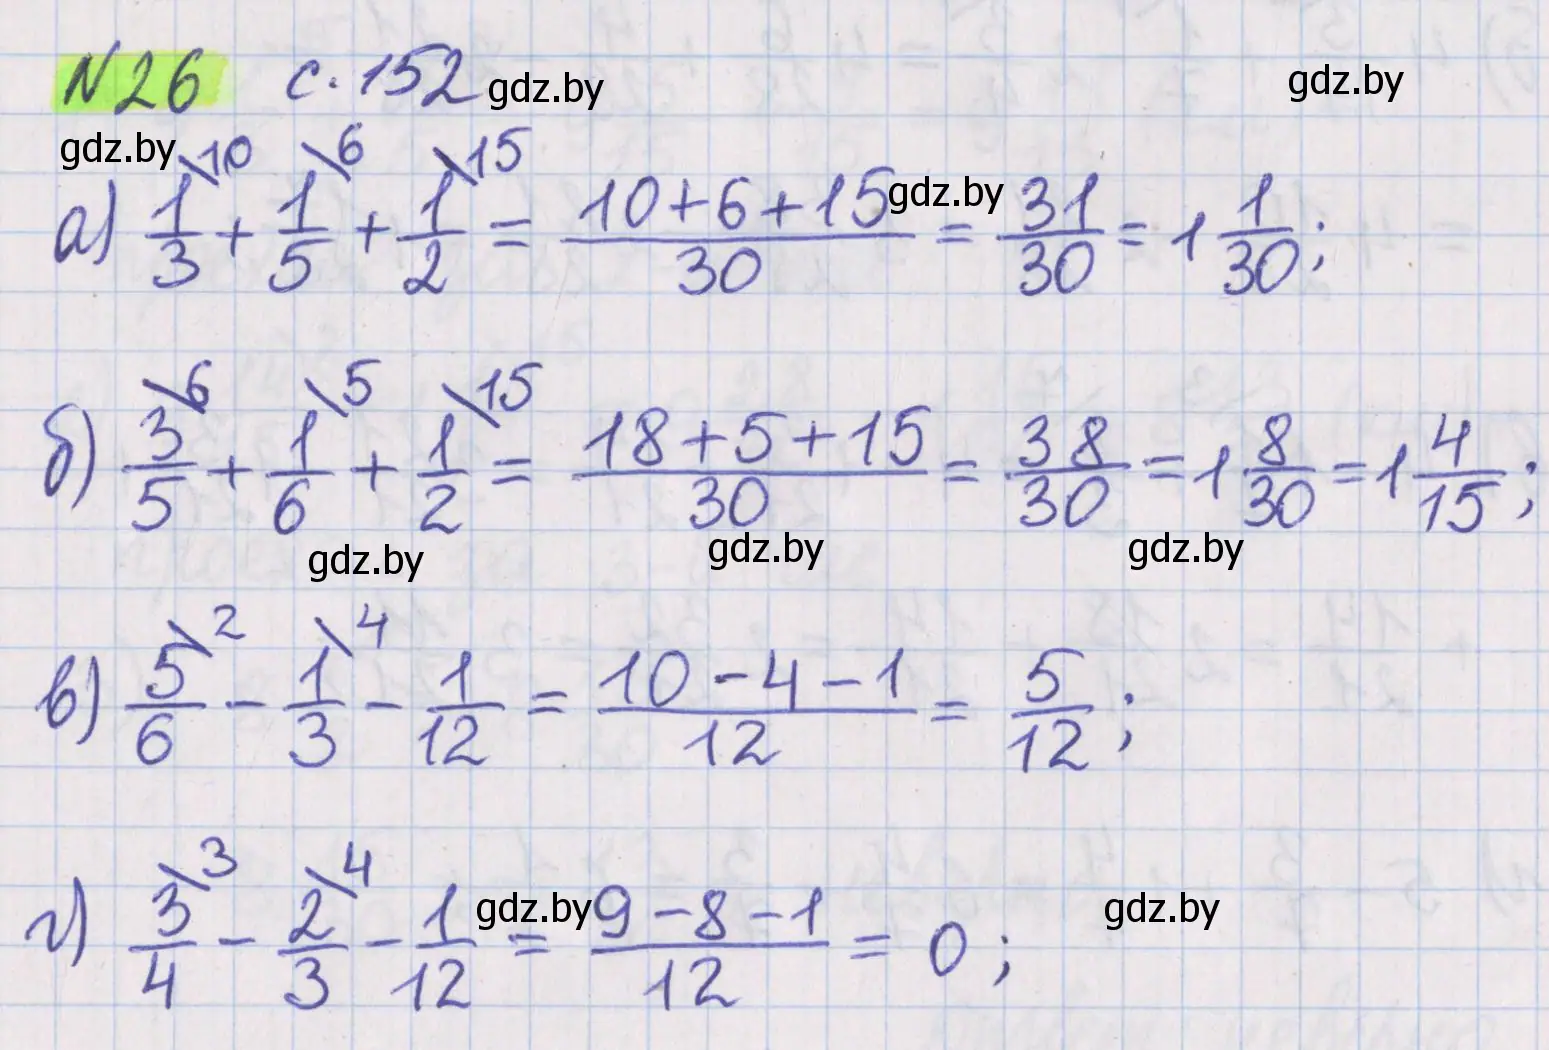 №26 с.152 gdz.by gdz.by
gdz.by
а) 1/3\10 + 1/5\6 + 1/2\15 = (10+6+15)/30 gdz.by = 31/30 = 1 1/30;
б) 3/5\6 + 1/6\5 + 1/2\15 = (18+5+15)/30 = 38/30 = 1 8/30 = 1 4/15;
gdz.by gdz.by gdz.by
в) 5/6\2 - 1/3\4 - 1/12 = (10-4-1)/12 = 5/12;
г) 3/4\3 - 2/3\4 - 1/12 gdz.by = (9-8-1)/12 = 0; gdz.by